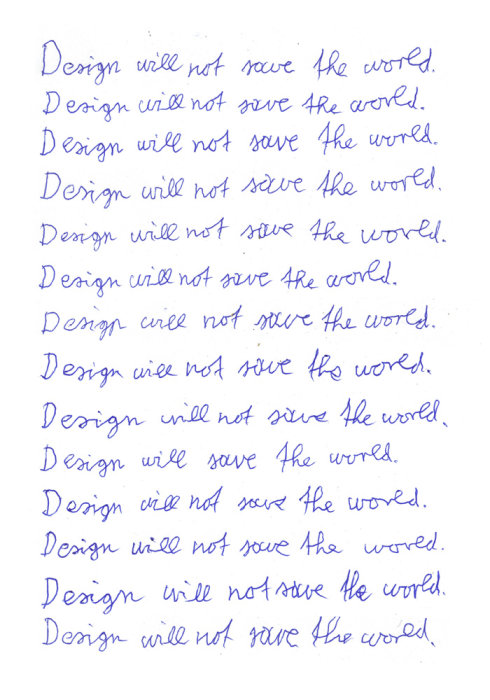 Design will not save the world.
Design will not save the world.
Design will not save the world.
Design will not save the world.
Design will not save the world.
Design will not save the world.
Design will not save the world.
Design will not save the world.
Design will not save the world.
Design will save the world.
Design will not save the world.
Design will not save the world.
Design will not save the world.
Design will not save the world.